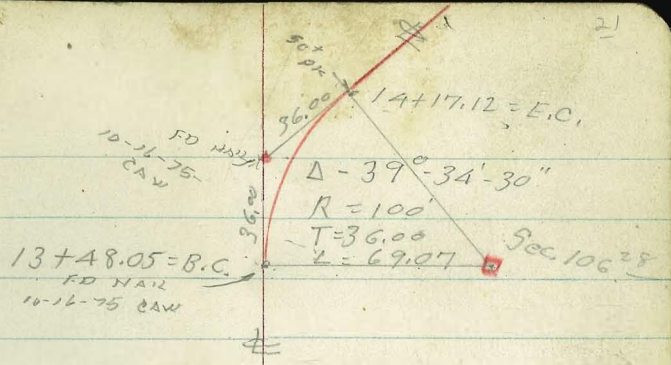 21
SET
PK
36.00
14+17.12 = E.C.
FD NAIL
10-16-75-
CAW
Δ - 39°-34'-30"
R = 100'
36.00
T=36.00
L = 69.07
Sec. 106.28
13+48.05=B.C.
FD NAIL
10-16-75 CAW